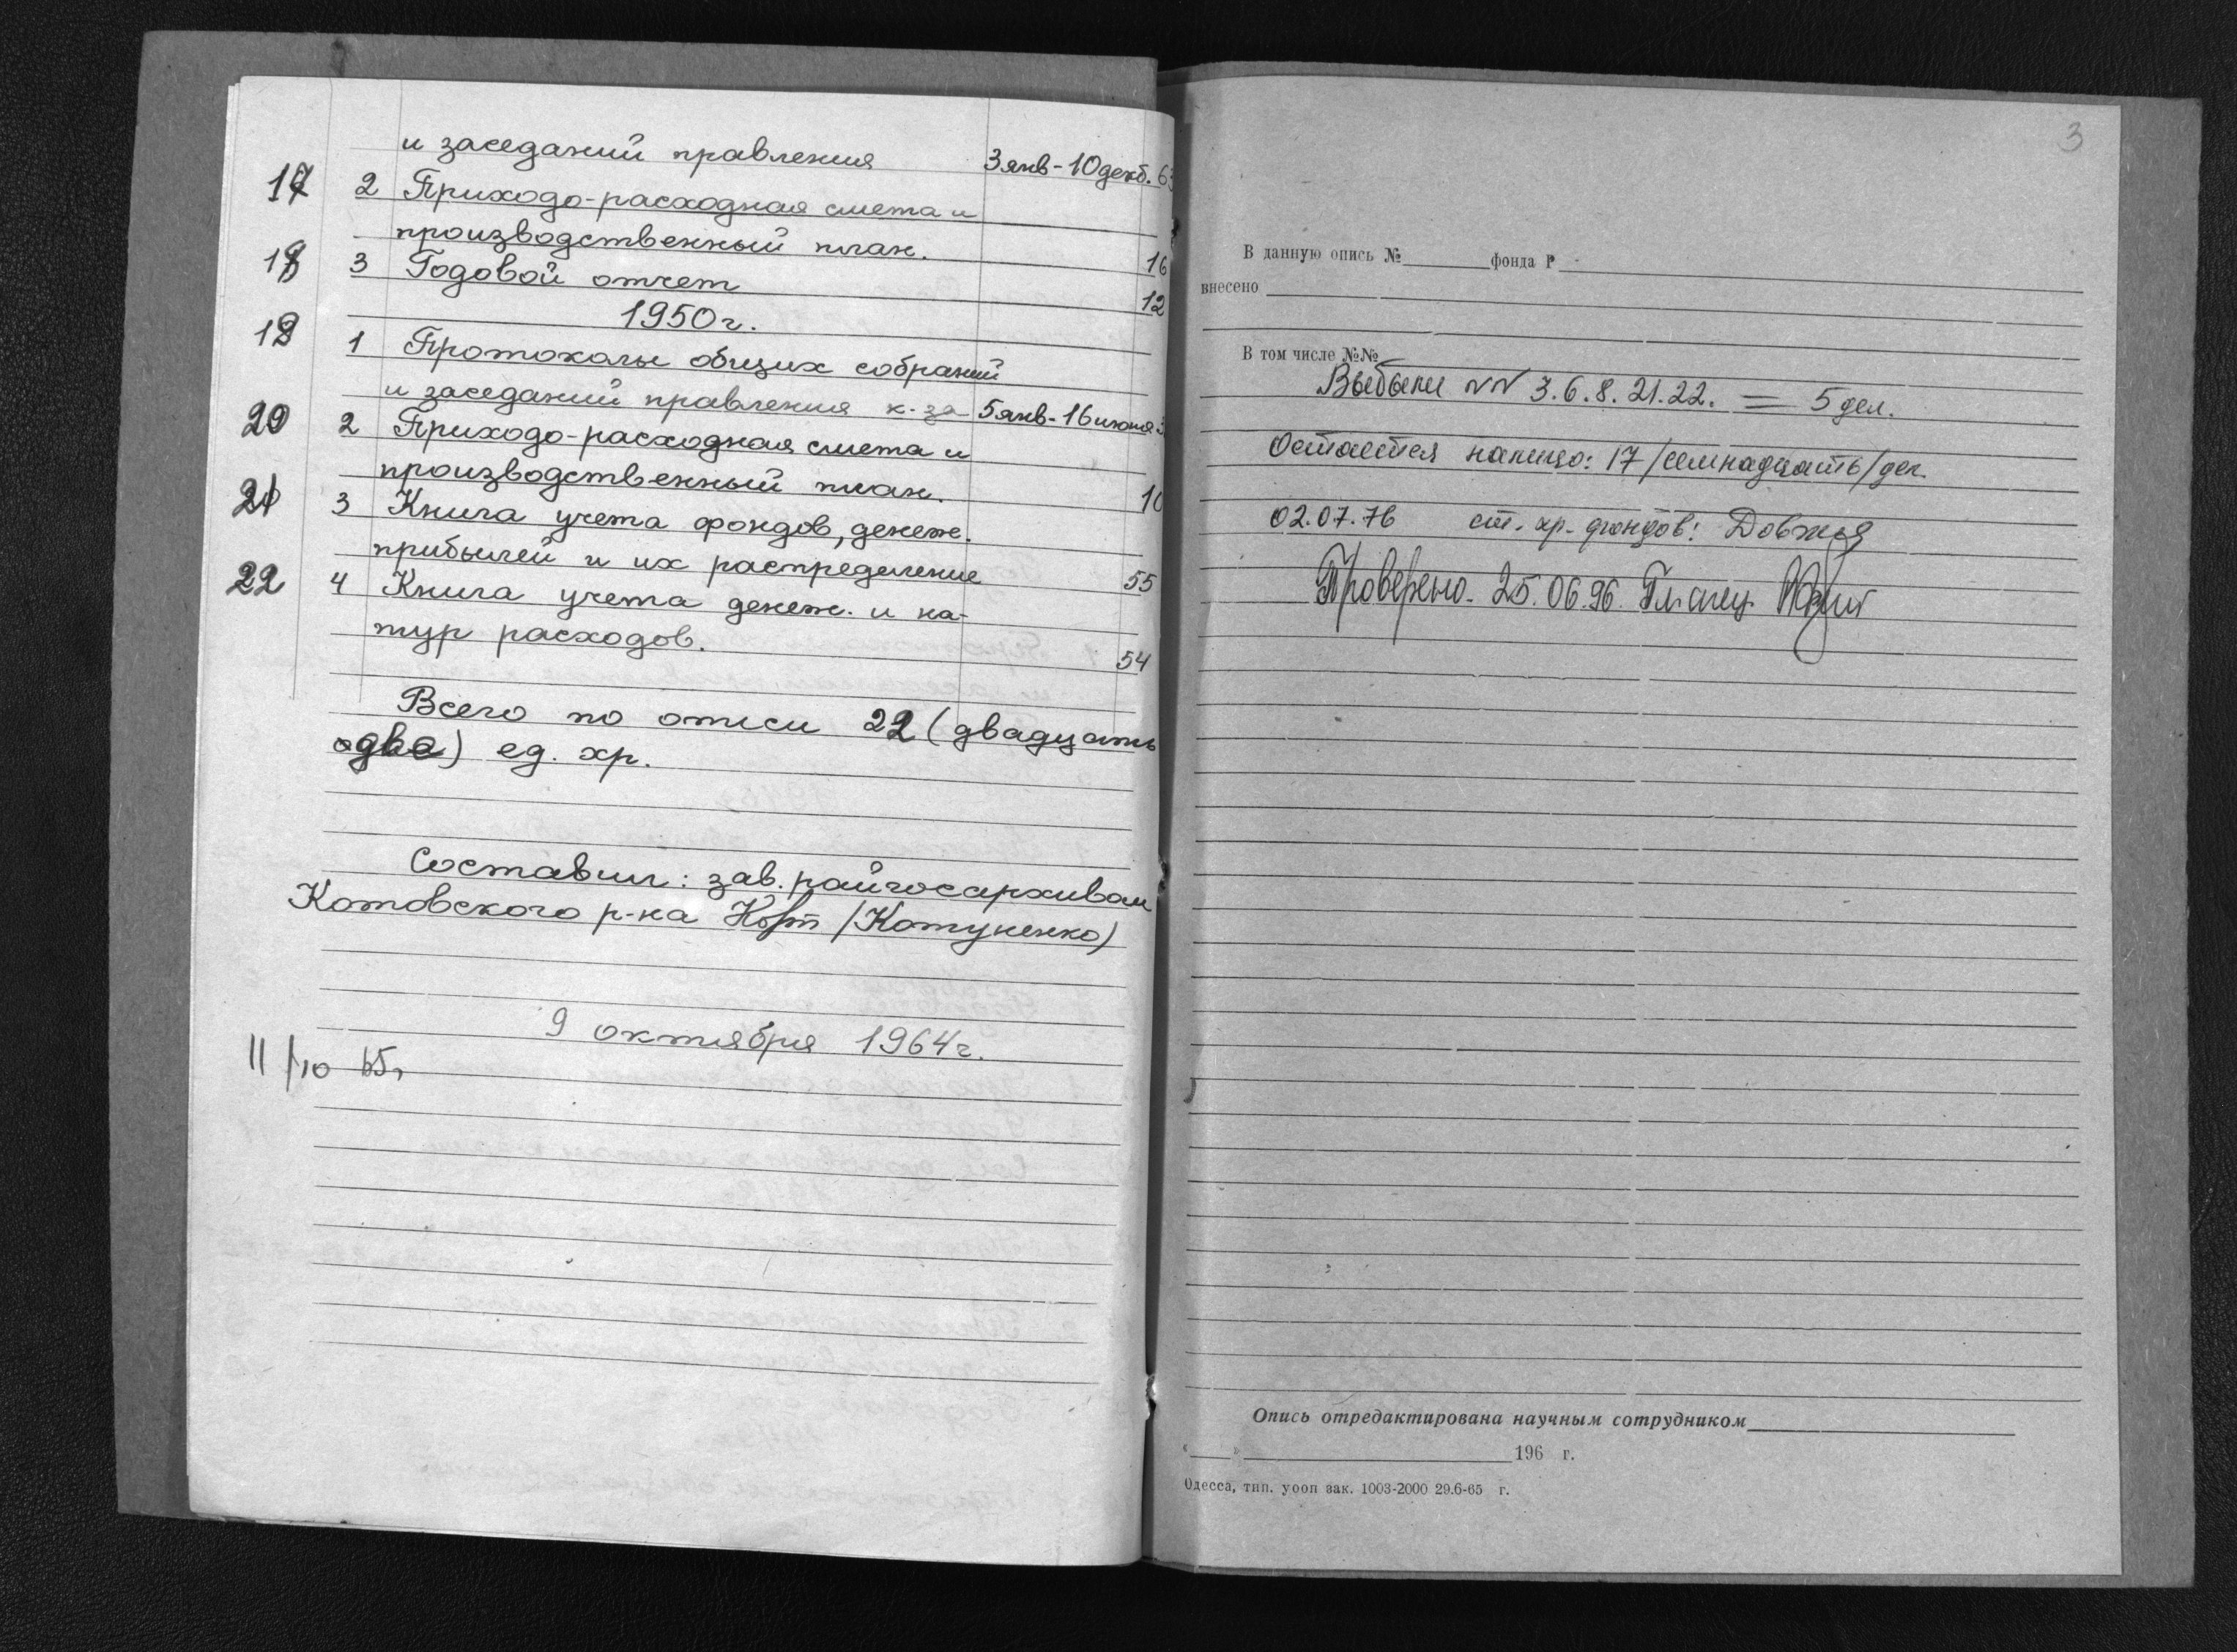 и заседаний правления 3 янв-10 декб. 63
17 2 Приходо-расходная смета и
производственный план. 16
18 3 Годовой отчет 12
1950 г.
19 1 Протоколы общих собраний
и заседаний правления к-за 5 янв-16 июня
20 2 Приходо-расходная смета и
производственный план. 10
21 3 Книга учета фондов, денеж.
прибылей и их распределение 55
22 4 Книга учета денеж. и на-
тур расходов. 54
Всего по описи 22 (двадцать
два) ед. хр.
Составил: зав. райгосархивом
Котовского р-на /Котуненко)
9 октября 1964 г.
11/10 65г
3
В данную опись № фонда Р
внесено
В том числе №№
Выбыли NN 3.6.8.21.22. = 5 дел.
Остается налицо: 17 /семнадцать/ дел.
02.07.76 ст. хр. фондов: Довжья
Проверено. 25.06.96. Гл. спец.
Опись отредактирована научным сотрудником
" " 196 г.
Одесса, тип. уооп зак. 1003-2000 29.6-65 г.